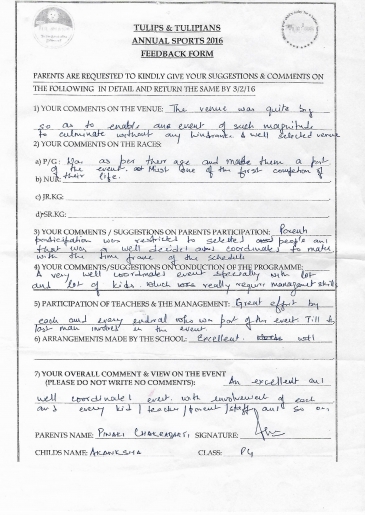 TULIPS & TULIPIANS
ANNUAL SPORTS 2016
FEEDBACK FORM
PARENTS ARE REQUESTED TO KINDLY GIVE YOUR SUGGESTIONS & COMMENTS ON
THE FOLLOWING IN DETAIL AND RETURN THE SAME BY 3/2/16
1) YOUR COMMENTS ON THE VENUE: The venue was quite big
so as to enable an event of such magnitude
to culminate without any hindrance & well selected venue
2) YOUR COMMENTS ON THE RACES:
a) P/G: Was as per their age and made them a part
of the event. Must one of the first competion of
b) NUR: their life.
c) JR.KG:
d) SR.KG:
3) YOUR COMMENTS / SUGGESTIONS ON PARENTS PARTICIPATION: Parents
participation was restricted to selected people and
that was a well decided and coordinated to match
with the time frame of the schedule
4) YOUR COMMENTS/SUGGESTIONS ON CONDUCTION OF THE PROGRAMME:
A very well coordinated event specially with lot
and lot of kids. which was really require management skills
5) PARTICIPATION OF TEACHERS & THE MANAGEMENT: Great effort by
each and every who was part of the event Till the
last man involved in the event
6) ARRANGEMENTS MADE BY THE SCHOOL: Excellent.
7) YOUR OVERALL COMMENT & VIEW ON THE EVENT
(PLEASE DO NOT WRITE NO COMMENTS): An excellent and
well coordinated event. with involvement of each
and every kid / teacher / parent / staff and so on.
PARENTS NAME: PINAKI CHAKRABARTI SIGNATURE:
CHILDS NAME: AKANKSHA CLASS: PG